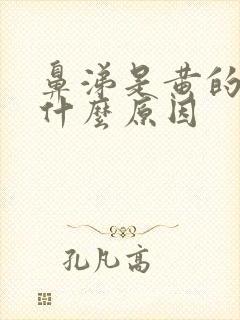 鼻涕是黄的
什麼原因
孔凡高